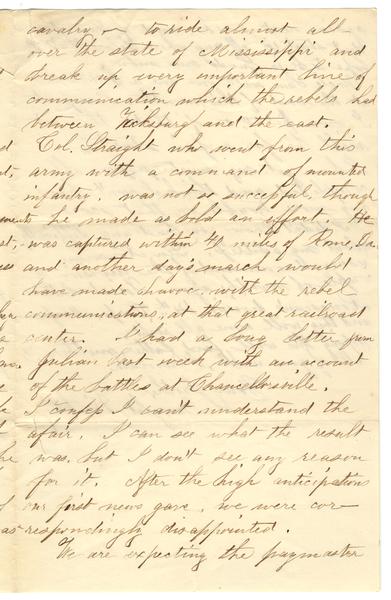 cavalry - to ride almost all
over the state of Mississippi and
break up every important line of
communication which the rebels had
between Vicksburg and the east.
Col. Straight who went from this
army with a command of mounted
infantry, was not so successful, though
he made as bold an effort. He
was captured within miles of Rome, Ga.
and another day's march would
have made havoc with the rebel
communications, at that great railroad
center. I had a long letter from
Julian last week with an account
of the battles at Chancellorsville.
I confess I can't understand the
afair. I can see what the result
was, but I don't see any reason
for it. After the high anticipations
our first news gave, we were cor-
respondingly disappointed.
We are expecting the paymaster